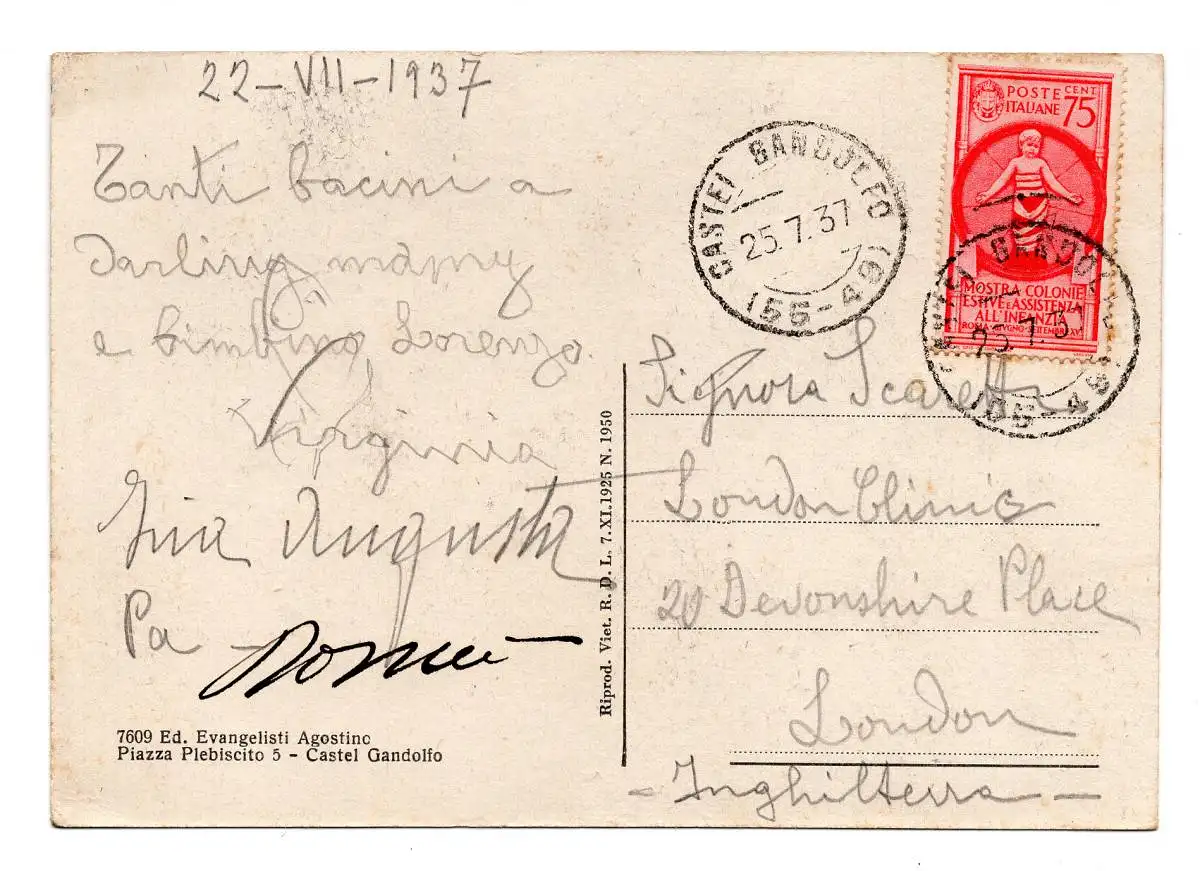 22-VII-1937
Tanti bacini a
Darling mamy
e bimbino Lorenzo.
Virginia
Augusta
Pa
7609 Ed. Evangelisti Agostino
Piazza Plebiscito 5 - Castel Gandolfo
Riprod. Viet. R. D. L. 7.XI.1925 N. 1950
CASTEL GANDOLFO
25.7.37
(55-49)
POSTE CENT
ITALIANE 75
MOSTRA COLONIE
ESTIVE E ASSISTENZA
ALL'INFANZIA
ROMA GIUGNO-SETTEMBRE XV
CASTEL GANDOLFO
25.7.37
(55-49)
Signora Scaretti
London Clinic
20 Devonshire Place
London
- Inghilterra -